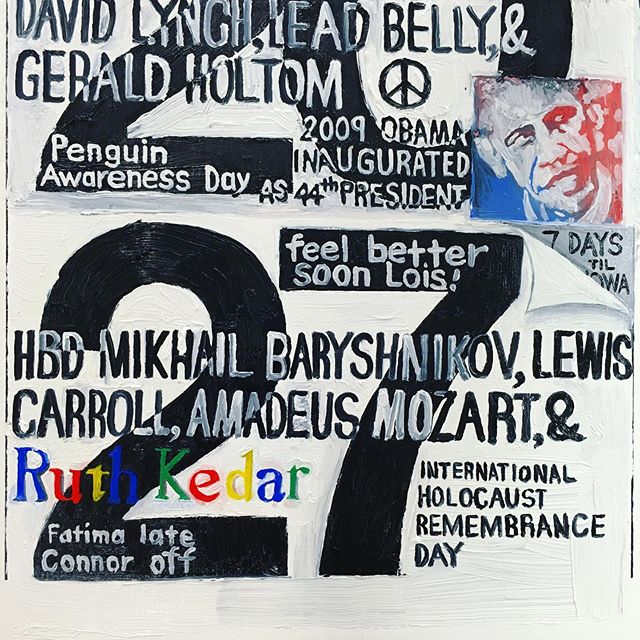 DAVID LYNCH, LEAD BELLY, &
GERALD HOLTOM
Penguin
Awareness Day
2009 OBAMA
INAUGURATED
AS 44th PRESIDENT
27
feel better
soon Lois!
7 DAYS
TIL
IOWA
HBD MIKHAIL BARYSHNIKOV, LEWIS
CARROLL, AMADEUS MOZART, &
Ruth Kedar
Fatima late
Connor off
INTERNATIONAL
HOLOCAUST
REMEMBRANCE
DAY